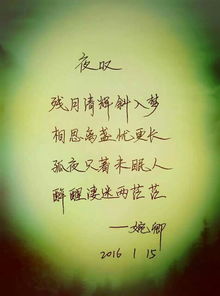 夜叹
残月清辉斜入梦
相思离盏忧更长
孤夜只着未眠人
醉醒凄迷两茫茫
——婉卿
2016 1 15